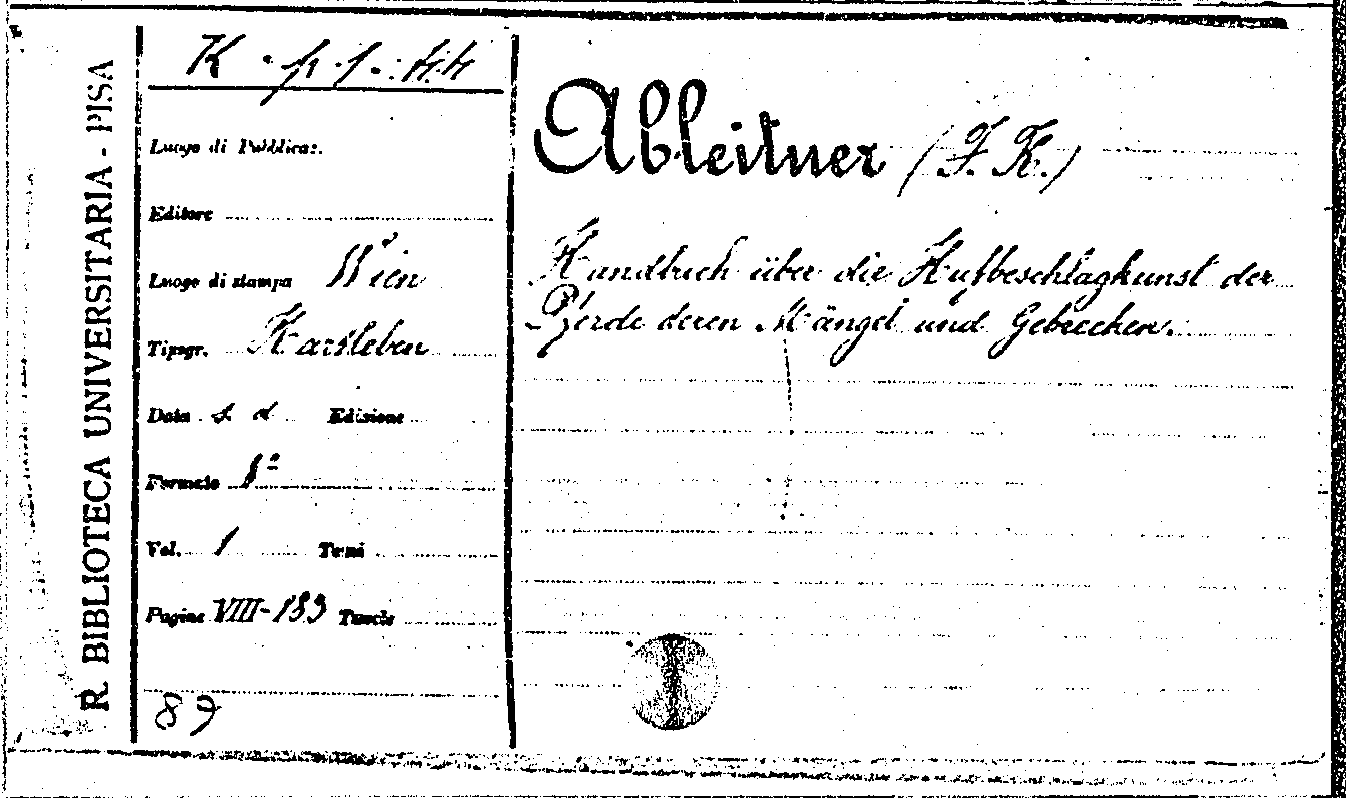 R. BIBLIOTECA UNIVERSITARIA - PISA
K
Luogo di Pubblicaz.
Editore
Luogo di stampa Wien
Tipogr. Hartleben
Data s. d. Edizione
Formato 8º
Vol. 1 Tomi
Pagine VIII-183 Tavole
89
Ableitner (F. K.)
Handbuch über die Hufbeschlagkunst der
Pferde deren Mängel und Gebrechen.